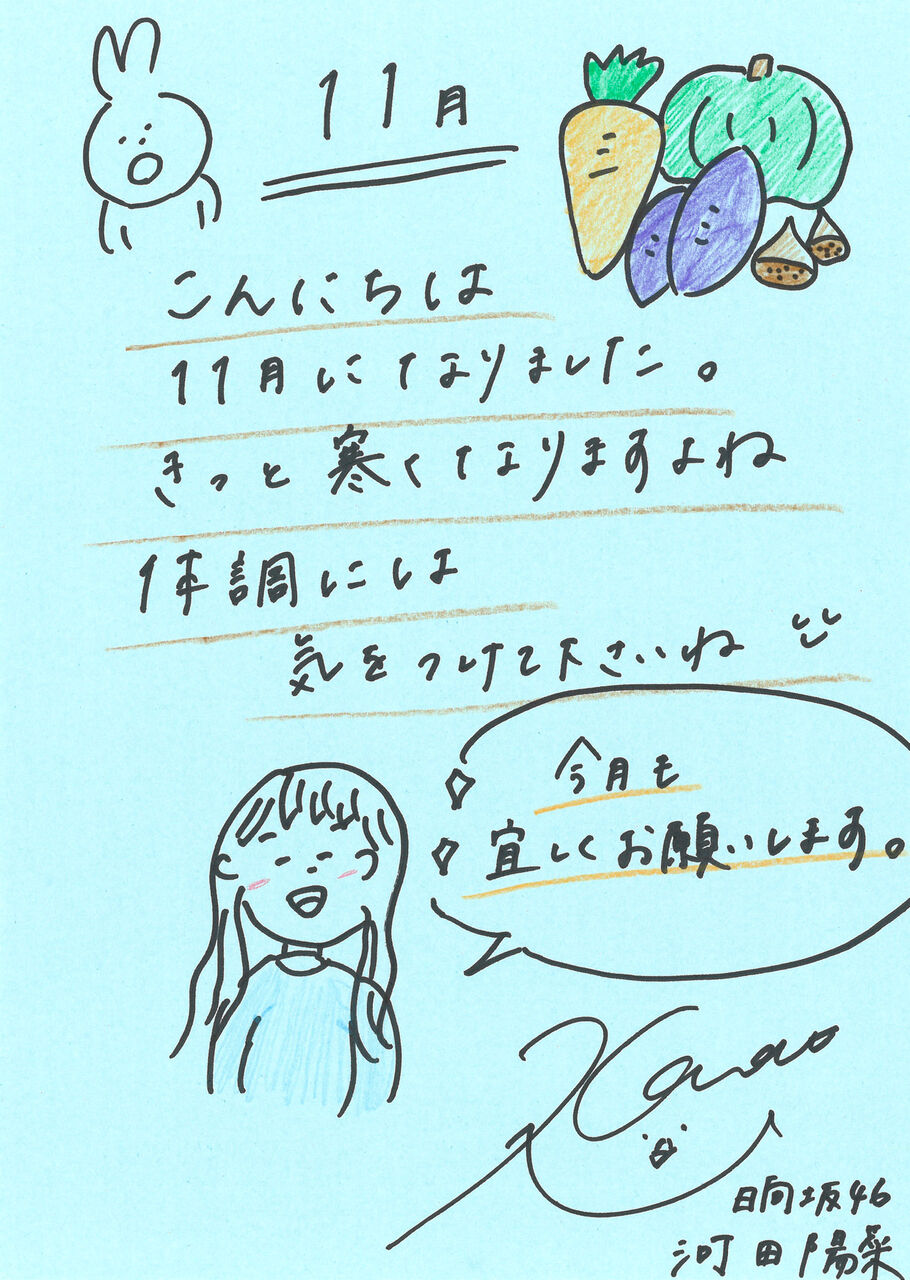 11月
こんにちは
11月になりました。
きっと寒くなりますよね
体調には
気をつけて下さいね
今月も
宜しくお願いします。
Kanao
日向坂46
河田陽菜